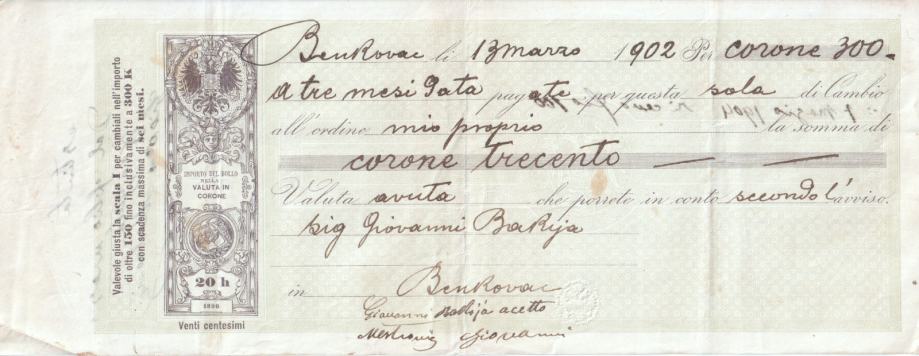 Valevole giusta la scala I per cambiali nell'importo
di oltre 150 fino inclusivamente a 300 K
con scadenza massima di sei mesi.
IMPORTO DEL BOLLO
NELLA
VALUTA IN
CORONE
20 h
1898
Venti centesimi
Benkovac li 13 marzo 1902 Per corone 300
A tre mesi data pagate per questa sola di Cambio
all'ordine mio proprio la somma di
corone trecento
Valuta avuta che porrete in conto secondo l'avviso.
Sig Giovanni Bakija
in Benkovac
Giovanni Bakija accetto
Giovanni